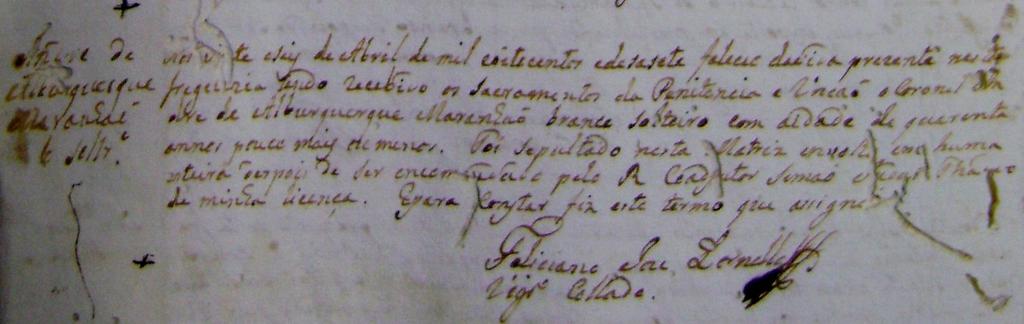 André de
Alburquerque
Maranhaõ
solt.ro
Aos vinte eseis de Abril de mil eoitecentos edesasete falesceo davida prezente nesta
freguezia tendo recebido os Sacramentos da Penitencia e Uncaõ o Coronel An
dre de Alburquerque Maranhaõ branco solteiro com aidade de quarenta
annos pouco mais oumenos. Foi sepultado nesta Matriz envolto em huma
esteira despois de ser encomendado pelo R. Coadjutor Simaõ
de minha licença. Epara constar fiz este termo que assignei.
Feliciano Joze Dornellas
Vigr.o Collado.